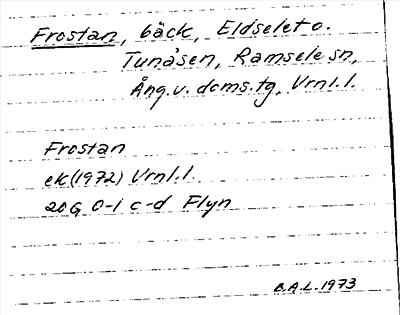 Frostan, bäck, Eldselet o.
Tunåsen, Ramsele sn,
Ång.v. doms.tg, Vrnl.l.
Frostan
ek(1972) Vrnl.l.
20G 0-1 c-d Flyn
B.A.L. 1973